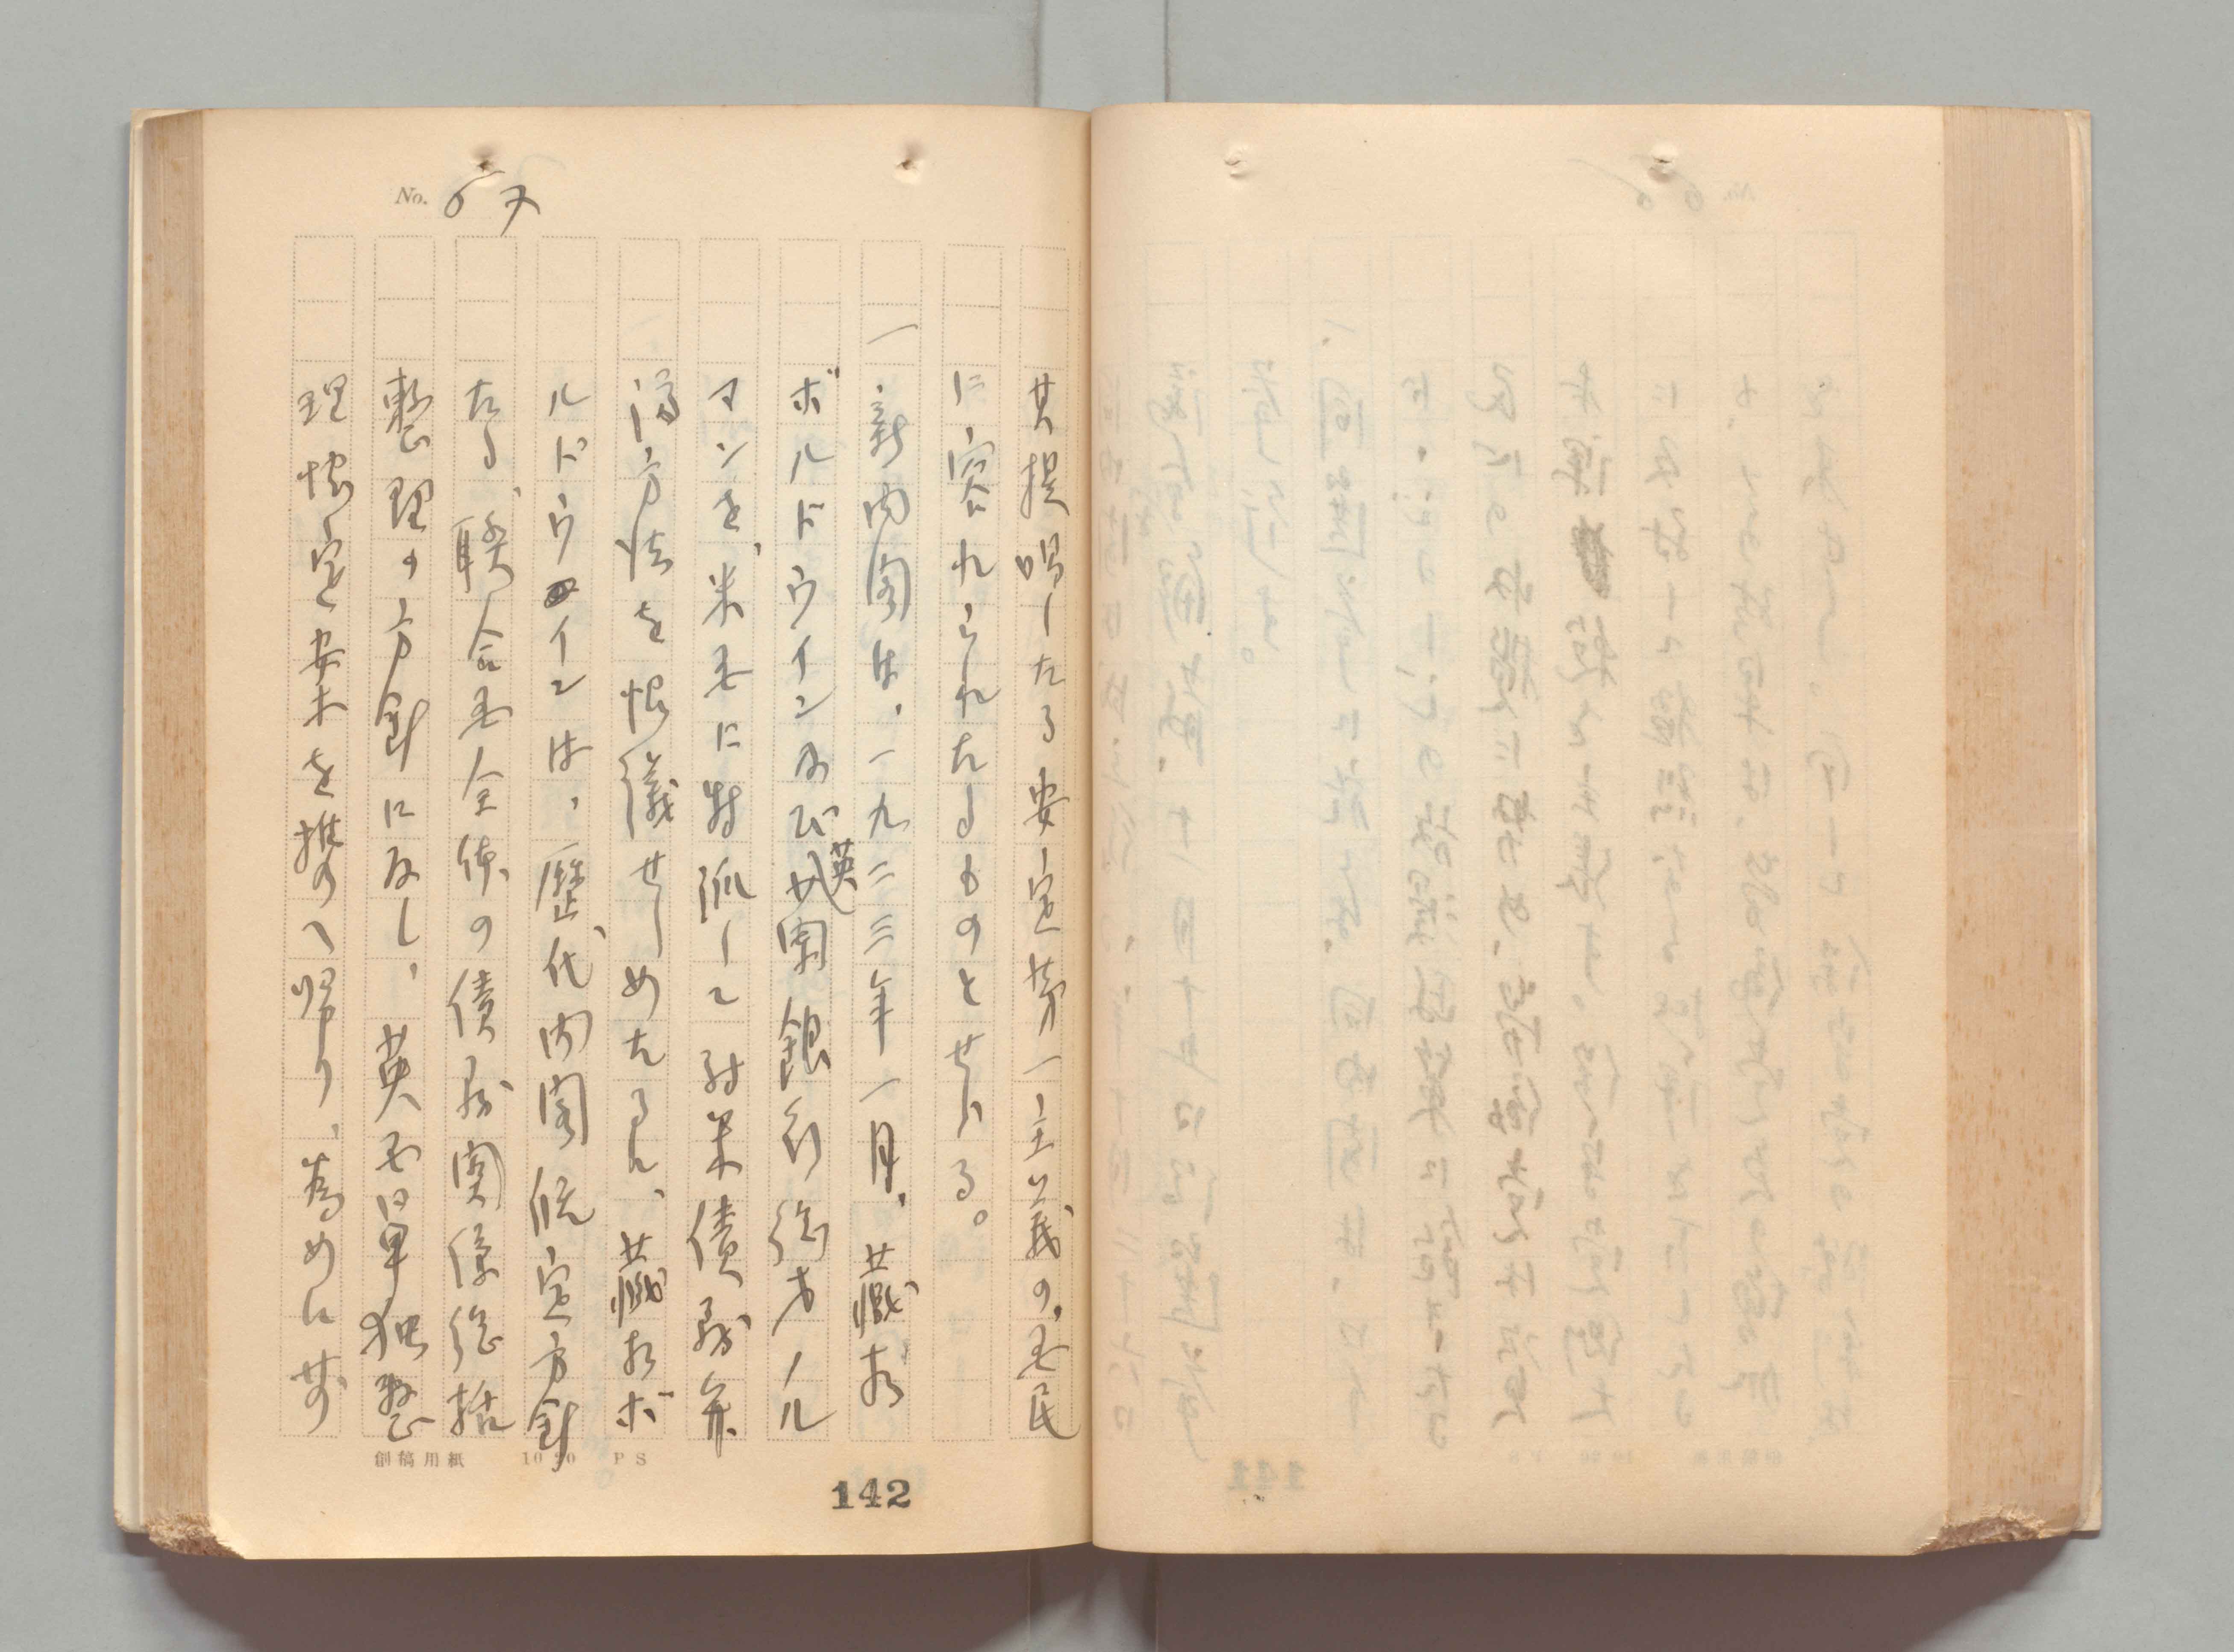 No. 67
其提唱したる安定第一主義の、国民
に容れられたるものとせらる。
一、新内閣は、一九二三年一月、蔵相
ボルドウイン及び英蘭銀行総才ノル
マンを、米国に特派して対米債務弁
済方法を協議せしめたるに、蔵相ボ
ルドウインは、歴代内閣既定方針
たる、聯合国全体の債務関係総括
整理の方針に反し、英国単独整
理協定案を携へ帰り、為めに
創稿用紙 10 20 PS
142